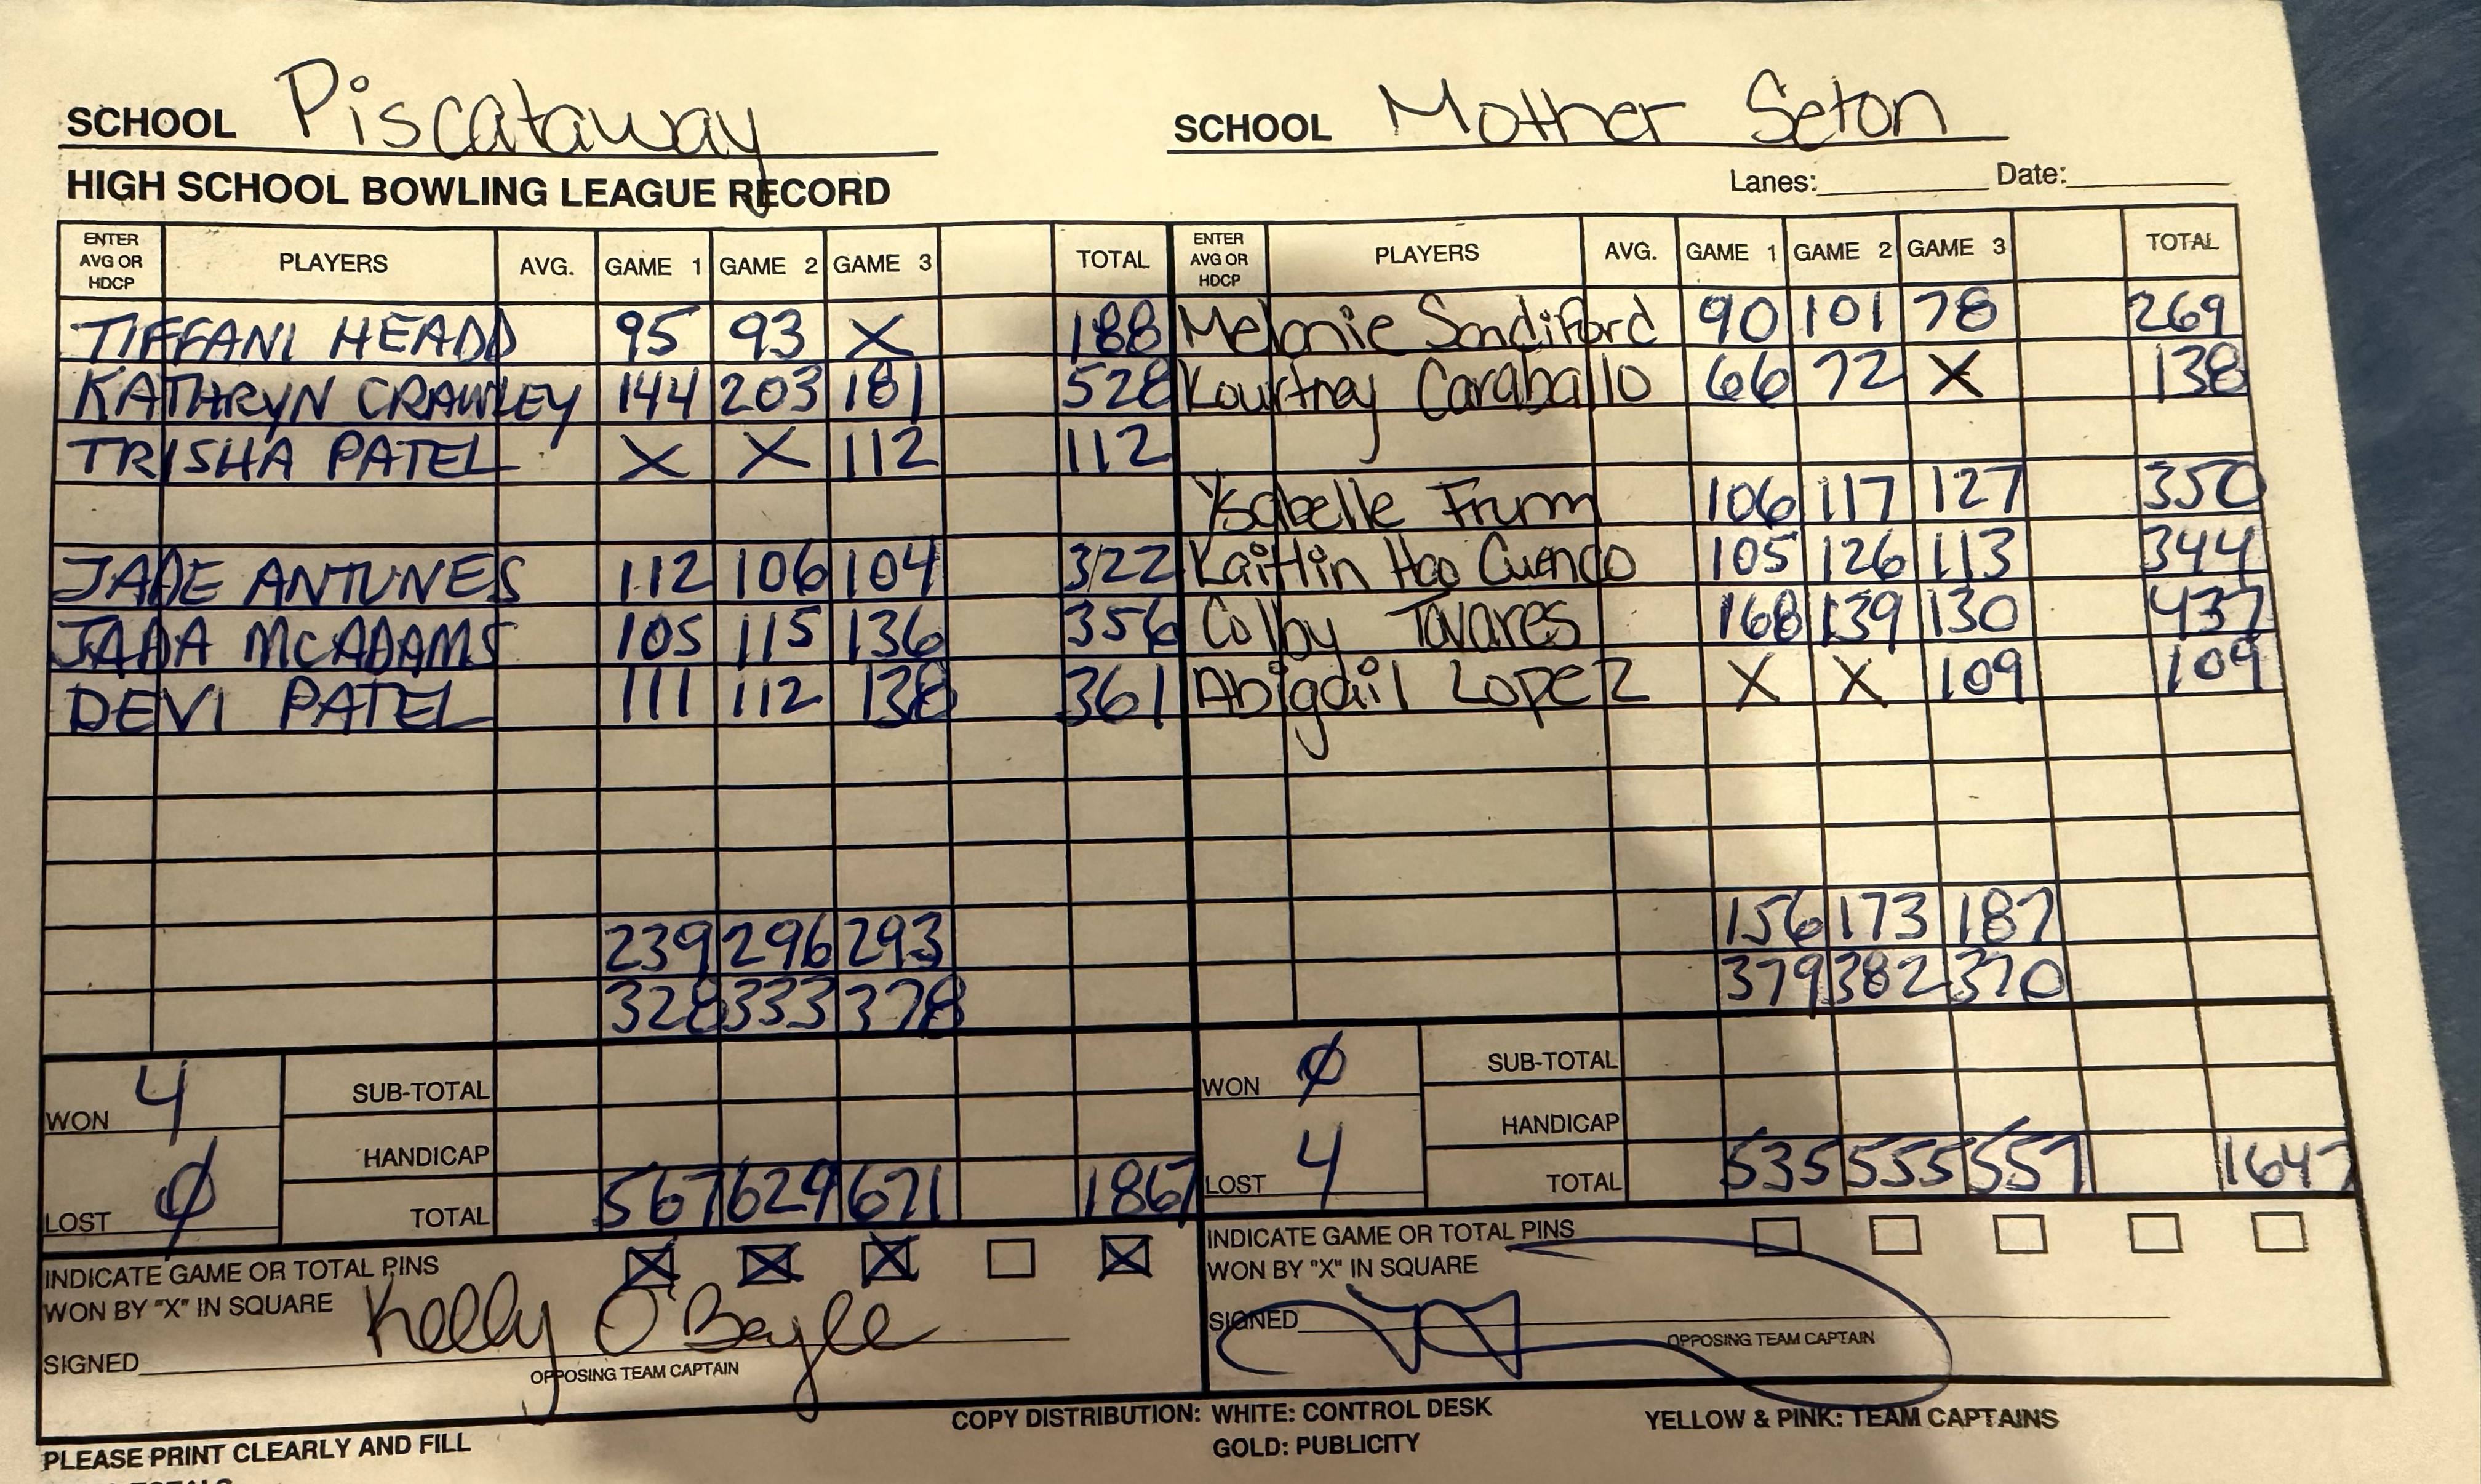 SCHOOL Piscataway SCHOOL Mother Seton
HIGH SCHOOL BOWLING LEAGUE RECORD Lanes: Date:
ENTER AVG OR HDCP PLAYERS AVG. GAME 1 GAME 2 GAME 3 TOTAL ENTER AVG OR HDCP PLAYERS AVG. GAME 1 GAME 2 GAME 3 TOTAL
TIFFANI HEADD 95 93 X 188 Melanie Sandiford 90 101 78 269
KATHRYN CRAWLEY 144 203 181 528 Kourtney Caraballo 66 72 X 138
TRISHA PATEL X X 112 112
Ysabelle Frum 106 117 127 350
JADE ANTUNES 112 106 104 322 Kaitlin Hao Cuenco 105 126 113 344
JADA MCADAMS 105 115 136 356 Colby Tavares 168 139 130 437
DEVI PATEL 111 112 138 361 Abigail Lopez X X 109 109
239 296 293 156 173 187
328 333 378 379 382 370
WON 4 SUB-TOTAL WON 0 SUB-TOTAL
HANDICAP HANDICAP
LOST 0 TOTAL 567 629 671 1867 LOST 4 TOTAL 535 555 557 1647
INDICATE GAME OR TOTAL PINS X X X X INDICATE GAME OR TOTAL PINS
WON BY "X" IN SQUARE WON BY "X" IN SQUARE
SIGNED Kelly O'Boyle SIGNED
OPPOSING TEAM CAPTAIN OPPOSING TEAM CAPTAIN
COPY DISTRIBUTION: WHITE: CONTROL DESK YELLOW & PINK: TEAM CAPTAINS
PLEASE PRINT CLEARLY AND FILL GOLD: PUBLICITY